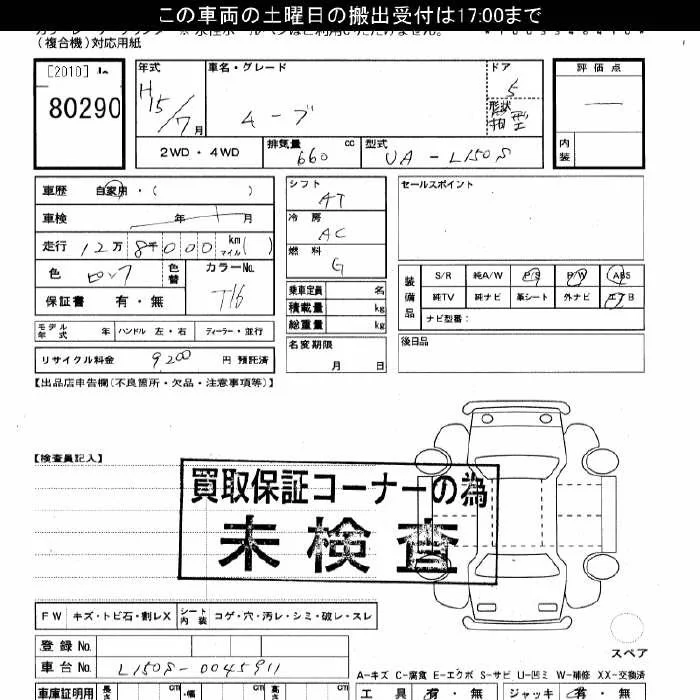 この車両の土曜日の搬出受付は17:00まで
(複合機)対応用紙
[2010]
80290
年式
H15/7月
車名・グレード
ムーブ
ドア
5
形状
箱型
評価点
—
内装
2WD・4WD
排気量
660
cc
型式
UA-L150S
車歴 自家用・( )
車検 年 月
走行 12万8千000 km マイル( )
色
色替
カラーNo.
T16
保証書 有・無
シフト
AT
冷房
AC
燃料
G
乗車定員 名
積載量 kg
総重量 kg
セールスポイント
装備品
S/R 純A/W P/S P/W ABS
純TV 純ナビ 革シート 外ナビ エアB
ナビ型番:
モデル年式 年 ハンドル 左・右 ディーラー・並行
名変期限
月 日
後日品
リサイクル料金 9200 円 預託済
【出品店申告欄(不良箇所・欠品・注意事項等)】
【検査員記入】
買取保証コーナーの為
未検査
FW キズ・トビ石・割レX シート内装 コゲ・穴・汚レ・シミ・破レ・スレ
スペア
登録No.
車台No. L150S-0045911
A-キズ C-腐食 E-エクボ S-サビ U-凹ミ W-補修 XX-交換済
車庫証明用 長さ cm 幅 cm 高さ cm
工具 有・無 ジャッキ 有・無